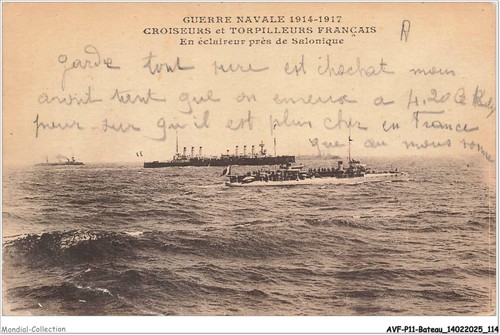 GUERRE NAVALE 1914-1917
CROISEURS et TORPILLEURS FRANÇAIS
En éclaireur près de Salonique
A
garde tout est mous
avoit tant que on a 4.20
pour sur qu'il est plus cher en France
que au mous
Mondial-Collection
AVF-P11-Bateau_14022025_114